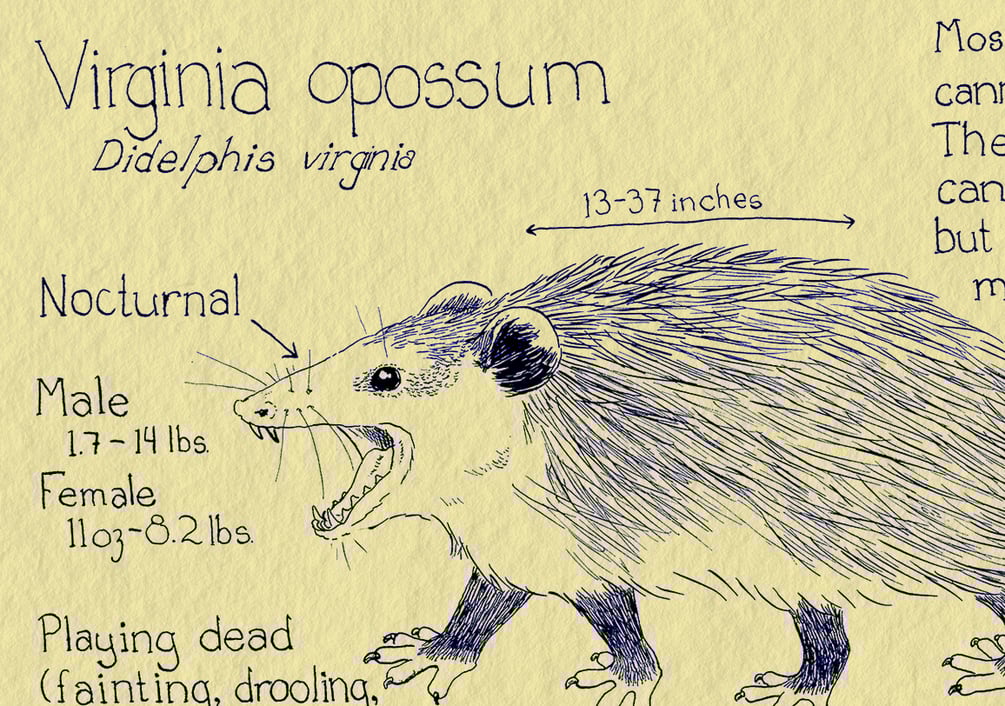 Virginia opossum
Didelphis virginia
13-37 inches
Nocturnal
Male
1.7-14 lbs.
Female
11oz-8.2 lbs.
Playing dead
(fainting, drooling,
Mos
cann
The
can
but
m